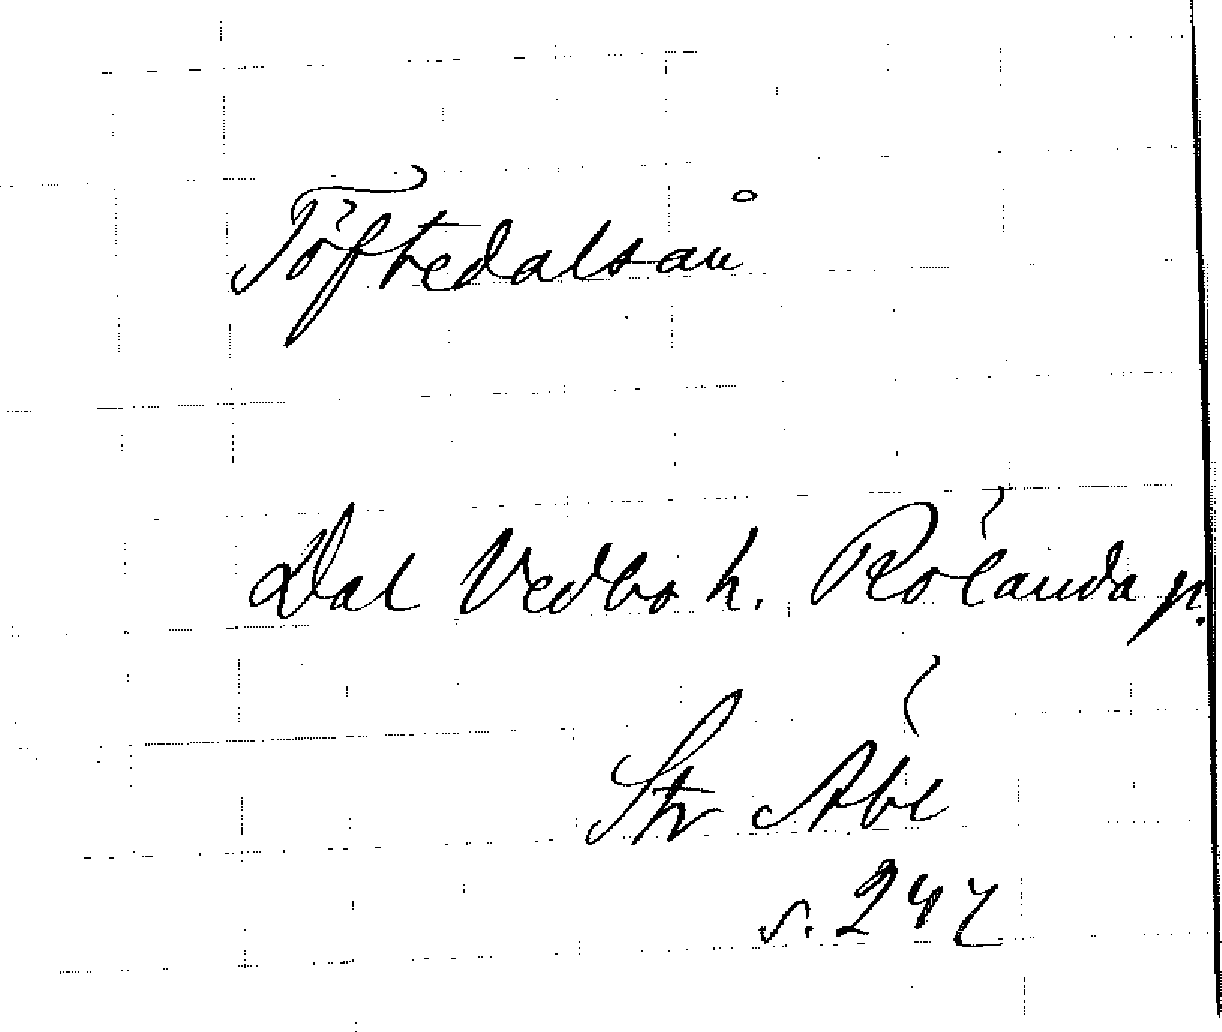 Töftedalsån
Dal Vedbo h. Rölanda p.
Str
s. 242